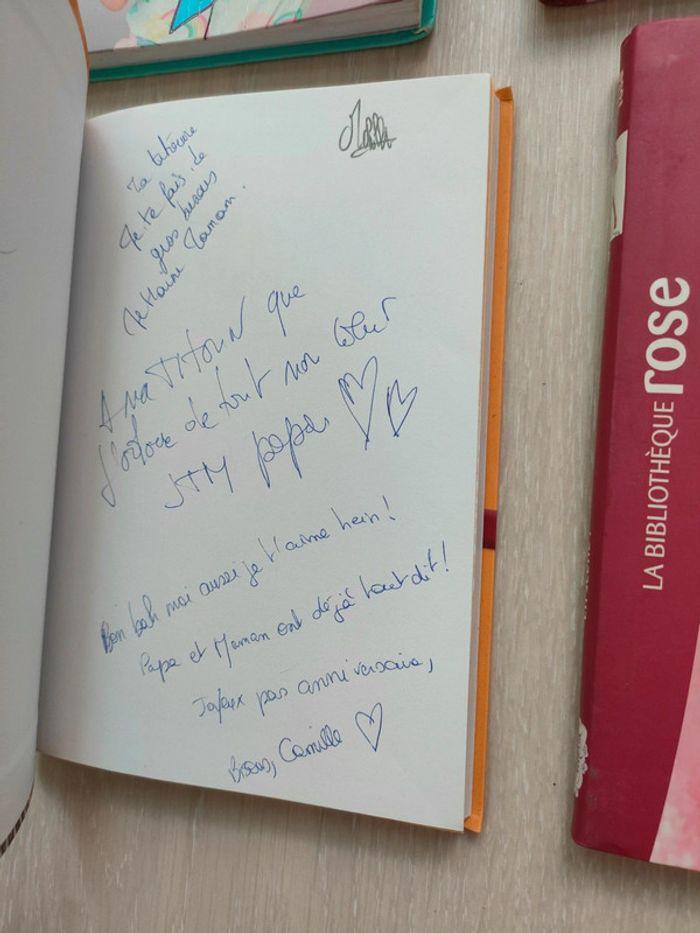 Je te fais de
gros bisous
Je t'aime Maman.
A ma TITOUN que
j'adore de tout mon cœur
JTM papa
Bon bah moi aussi je t'aime hein !
Papa et Maman ont déjà tout dit !
Joyeux pas anniversaire,
Bisous, Camille
LA BIBLIOTHÈQUE rose